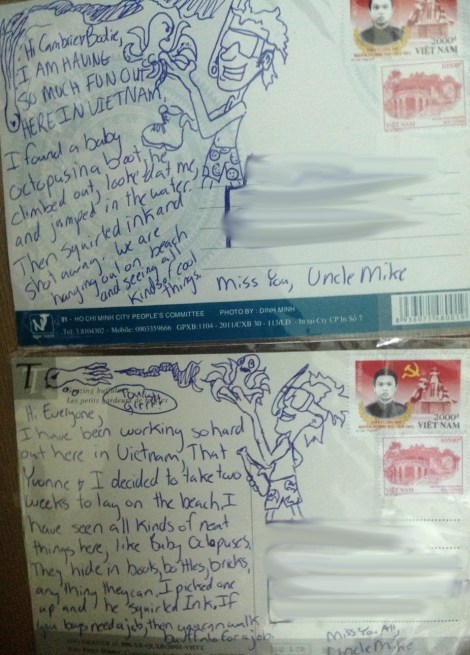 Hi Cambrie + Bodie,
I AM HAVING
SO MUCH FUN OUT
HERE IN VIETNAM.
I found a baby
octopus in a boot, he
climbed out, looked at me,
and jumped in the water.
Then squirted ink and
shot away. We are
hanging out on beach
and seeing all
kinds of cool
things.
Miss You, Uncle Mike
2000đ
VIỆT NAM
VIỆT NAM
91 - HO CHI MINH CITY PEOPLE'S COMMITTEE PHOTO BY: DINH MINH
Tel: 38104302 - Mobile: 0903359666 GPXB: 1104 - 2011/CXB 30 - 113/LD In tại Cty CP In Số 7
Les petits
Hi Everyone,
I have been working so hard
out here in Vietnam, That
Yvonne & I decided to take two
weeks to lay on the beach. I
have seen all kinds of neat
things here, like Baby Octopuses.
They hide in boots, bottles, bricks,
any thing they can. I picked one
up and he squirted Ink. If
you boys need a job, then you can walk
buffalo for a job.
Miss You All,
Uncle Mike
2000đ
VIỆT NAM
VIỆT NAM